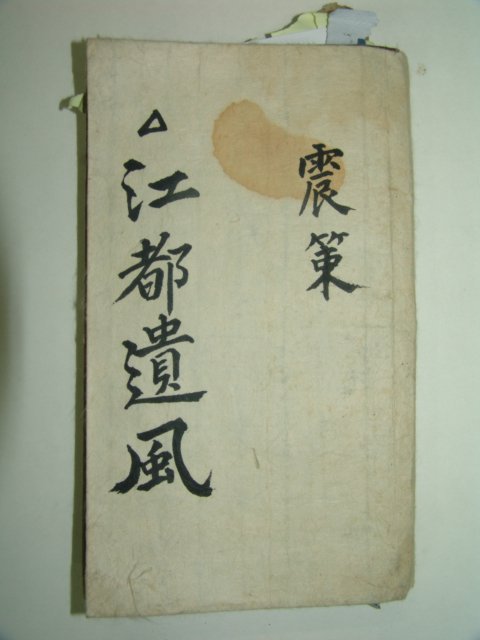 震策
△江都遺風